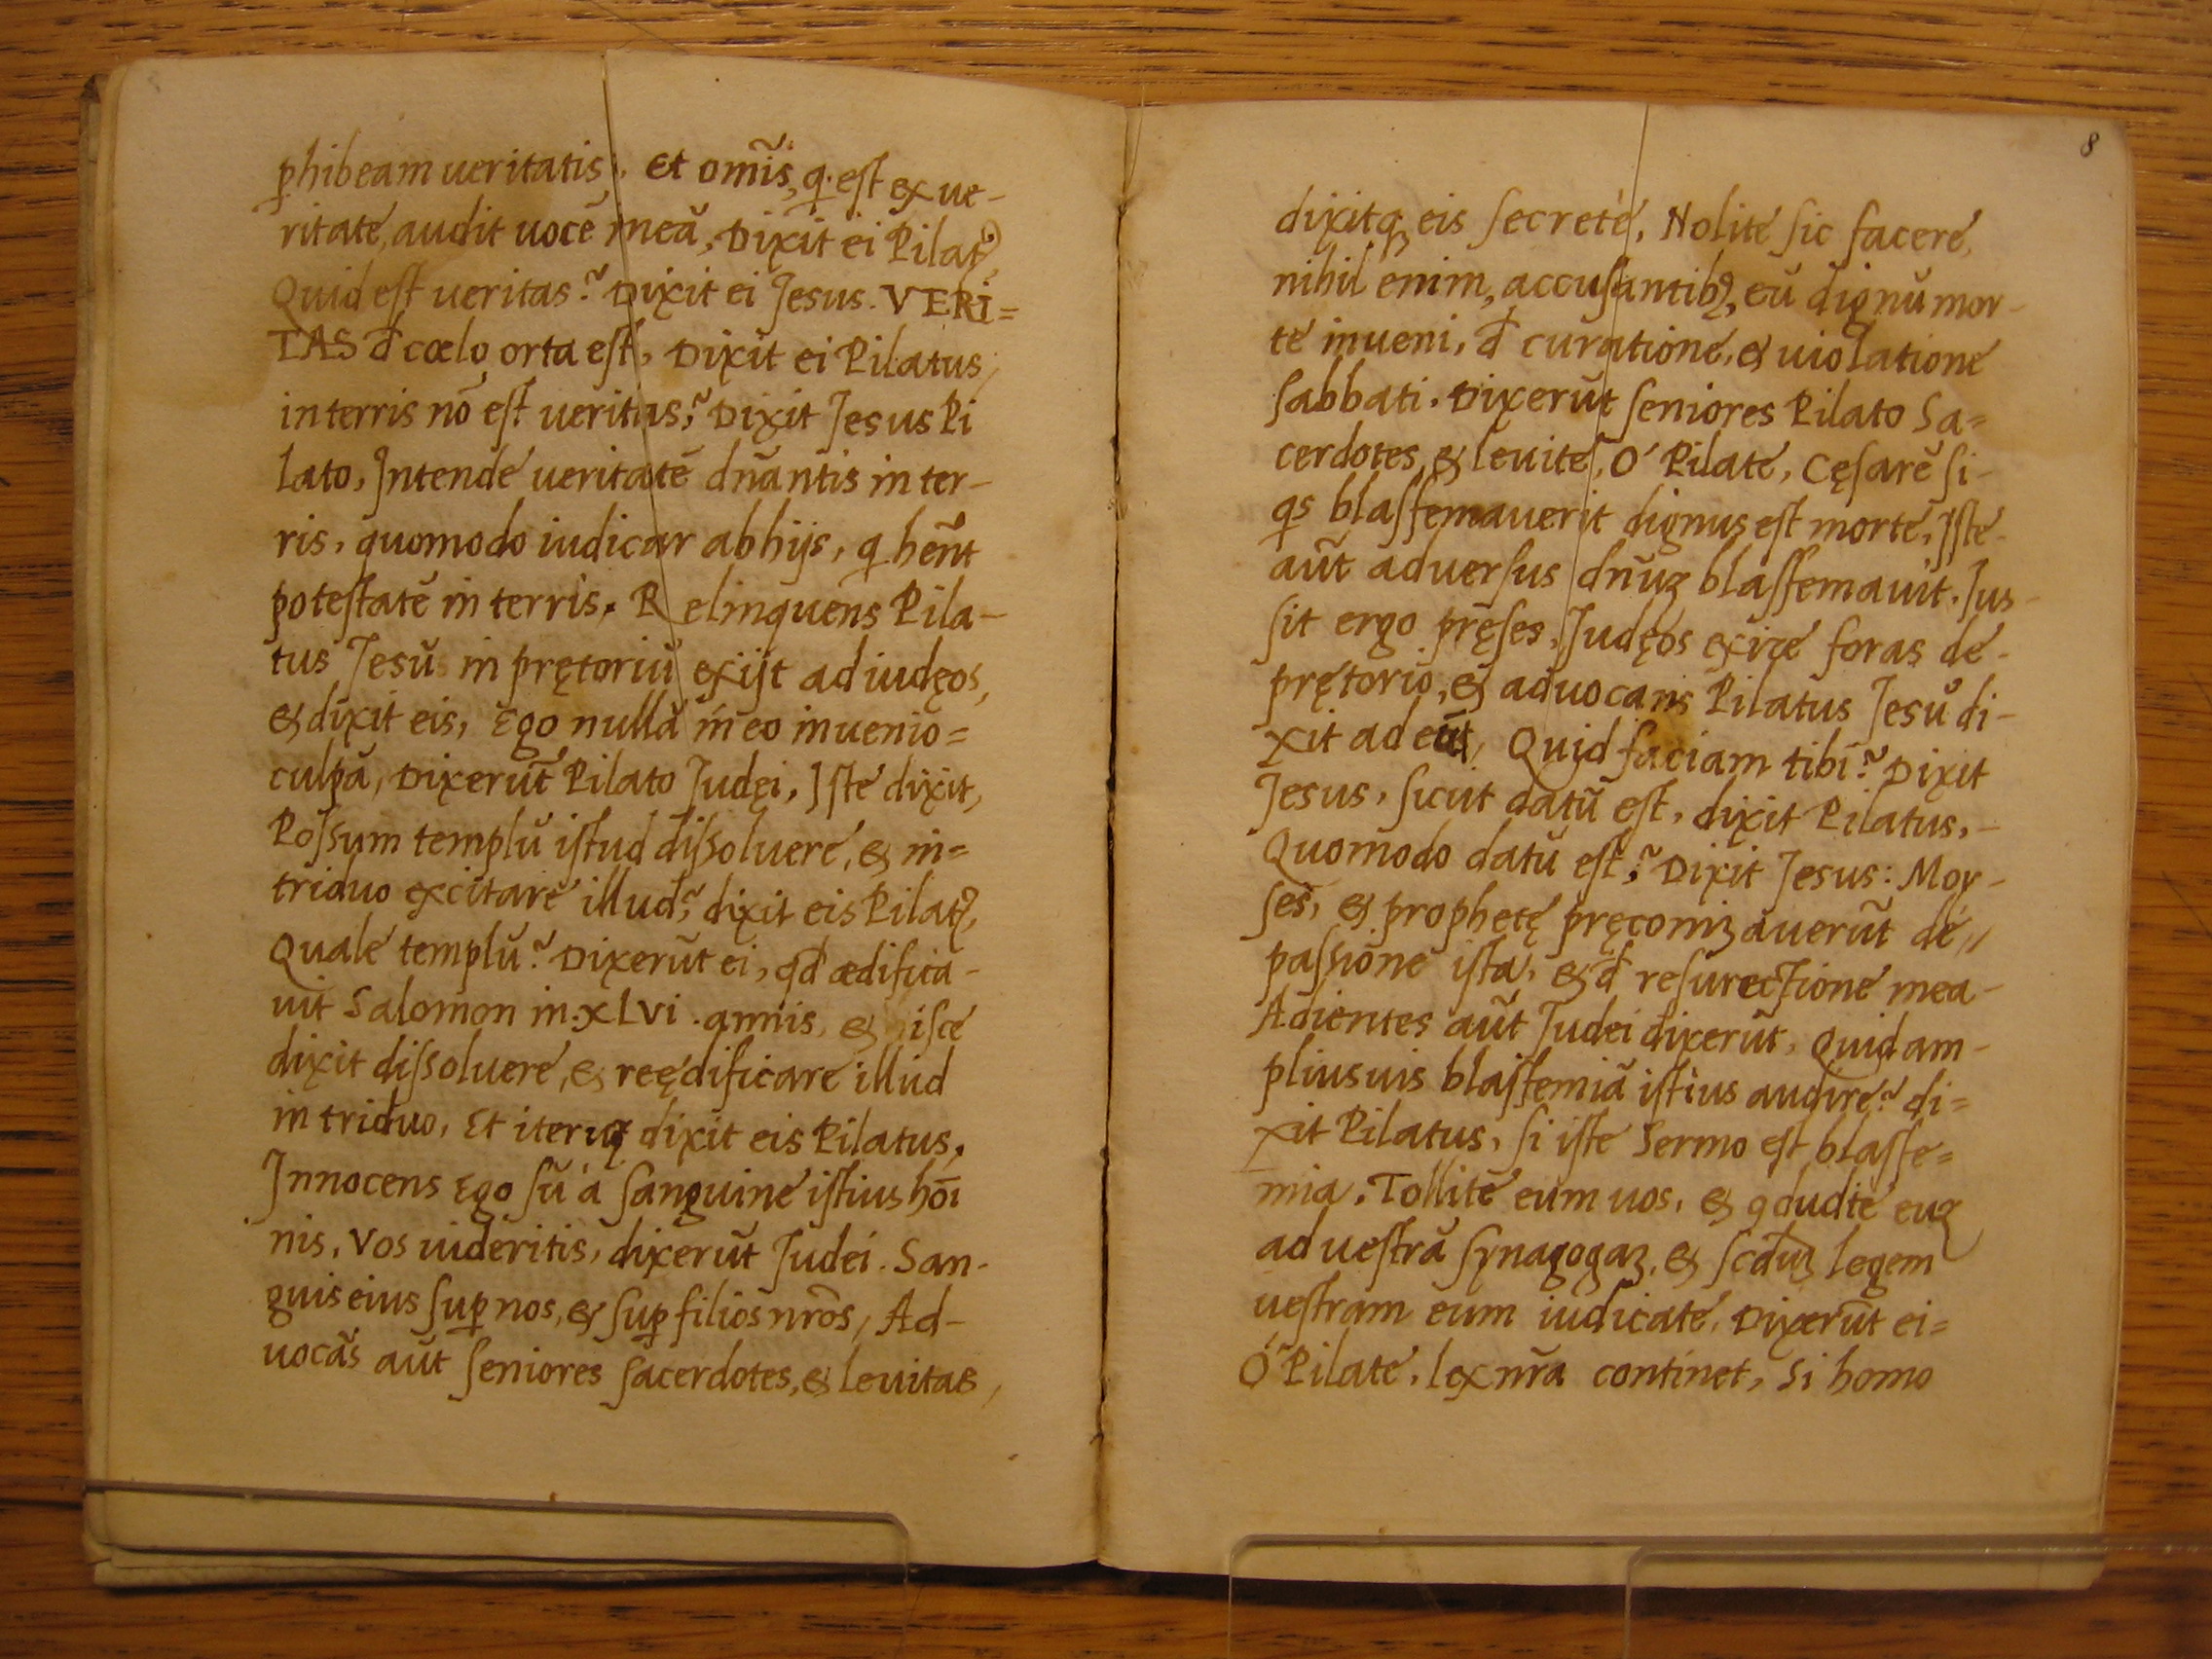 ꝓhibeam ueritatis. Et om̃is, q̇ est ex ue-
ritate, audit uocē meā, Dixit ei Pilatꝰ,
Quid est ueritas? Dixit ei Jesus. VERI=
TAS đ cœlo orta est, Dixit ei Pilatus,
in terris nō est ueritas? Dixit Jesus Pi
lato, Intende ueritatē dn̄antis in ter-
ris, quomodo iudicor ab hijs, q hēn̄t
potestatē in terris. Relinquens Pila-
tus Jesū in prętoriū exijt ad iudęos,
& dixit eis, Ego nullā in eo inuenio=
culpā, Dixerūt Pilato Judęi, Iste dixit,
Possum templū istud dissoluere, & in=
triduo excitare illud? dixit eis Pilatꝰ,
Quale templū? Dixerūt ei, qđ ædifica-
uit Salomon in .XLVI. annis, &
dixit dissoluere, & reędificare illud
in triduo, Et iteruꝫ dixit eis Pilatus,
Innocens Ego sū á sanguine istius hōi
nis, Vos uideritis, dixerūt Judei. San-
guis eius suꝑ nos, & suꝑ filios nr̄os, Ad-
uocās aūt seniores sacerdotes, & leuitas,
8
dixitqꝫ eis secretè, Nolite sic facere,
nihil enim, accusantibꝰ, eū dignū mor-
te inueni, đ curatione, & uiolatione
sabbati. Dixerūt seniores Pilato Sa=
cerdotes, & leuite, O´ Pilate, Cęsarē si-
qs blasfemauerit dignus est morte, Iste-
aūt aduersus dn̄uꝫ blasfemauit. Jus-
sit ergo pręses, Judęos exire foras de-
prętorio, & aduocans Pilatus Jesū di-
xit ad eū, Quid faciam tibi? Dixit
Jesus, sicut datū est, dixit Pilatus,-
Quomodo datū est? Dixit Jesus: Moy-
ses, & prophetę pręconizauerūt de,,
passione ista, & đ resurectione mea-
Adientes aūt Judei dixerūt, Quid am-
plius uis blasfemiā istius audire? di=
xit Pilatus, si iste Sermo est blasfe=
mia, Tollite eum uos, & ꝯdudte euꝫ
ad uestrā synagogaꝫ, & scđuꝫ legem
uestram eum iudicate, Dixerūt ei=
O´ Pilate, lex nr̄a continet, Si homo